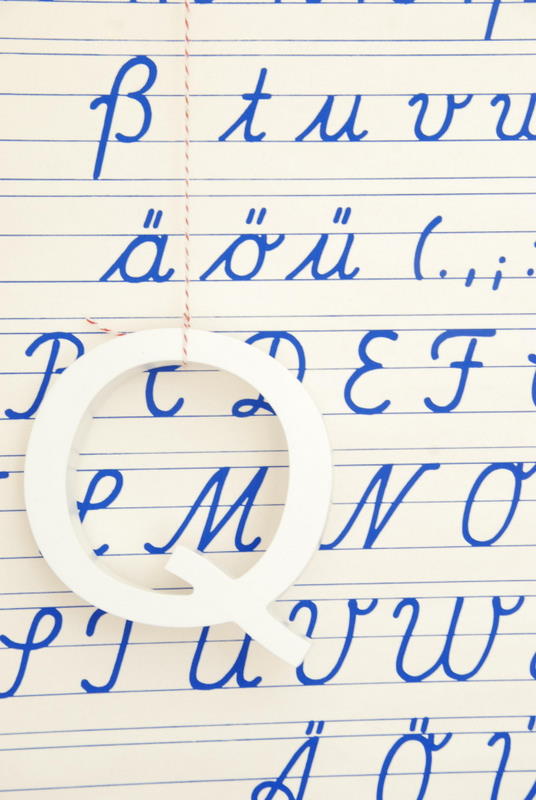 ß t u v
ä ö ü ( . , ; :
B C D E F
L M N O
S T U V W
Ä Ö Ü
Q